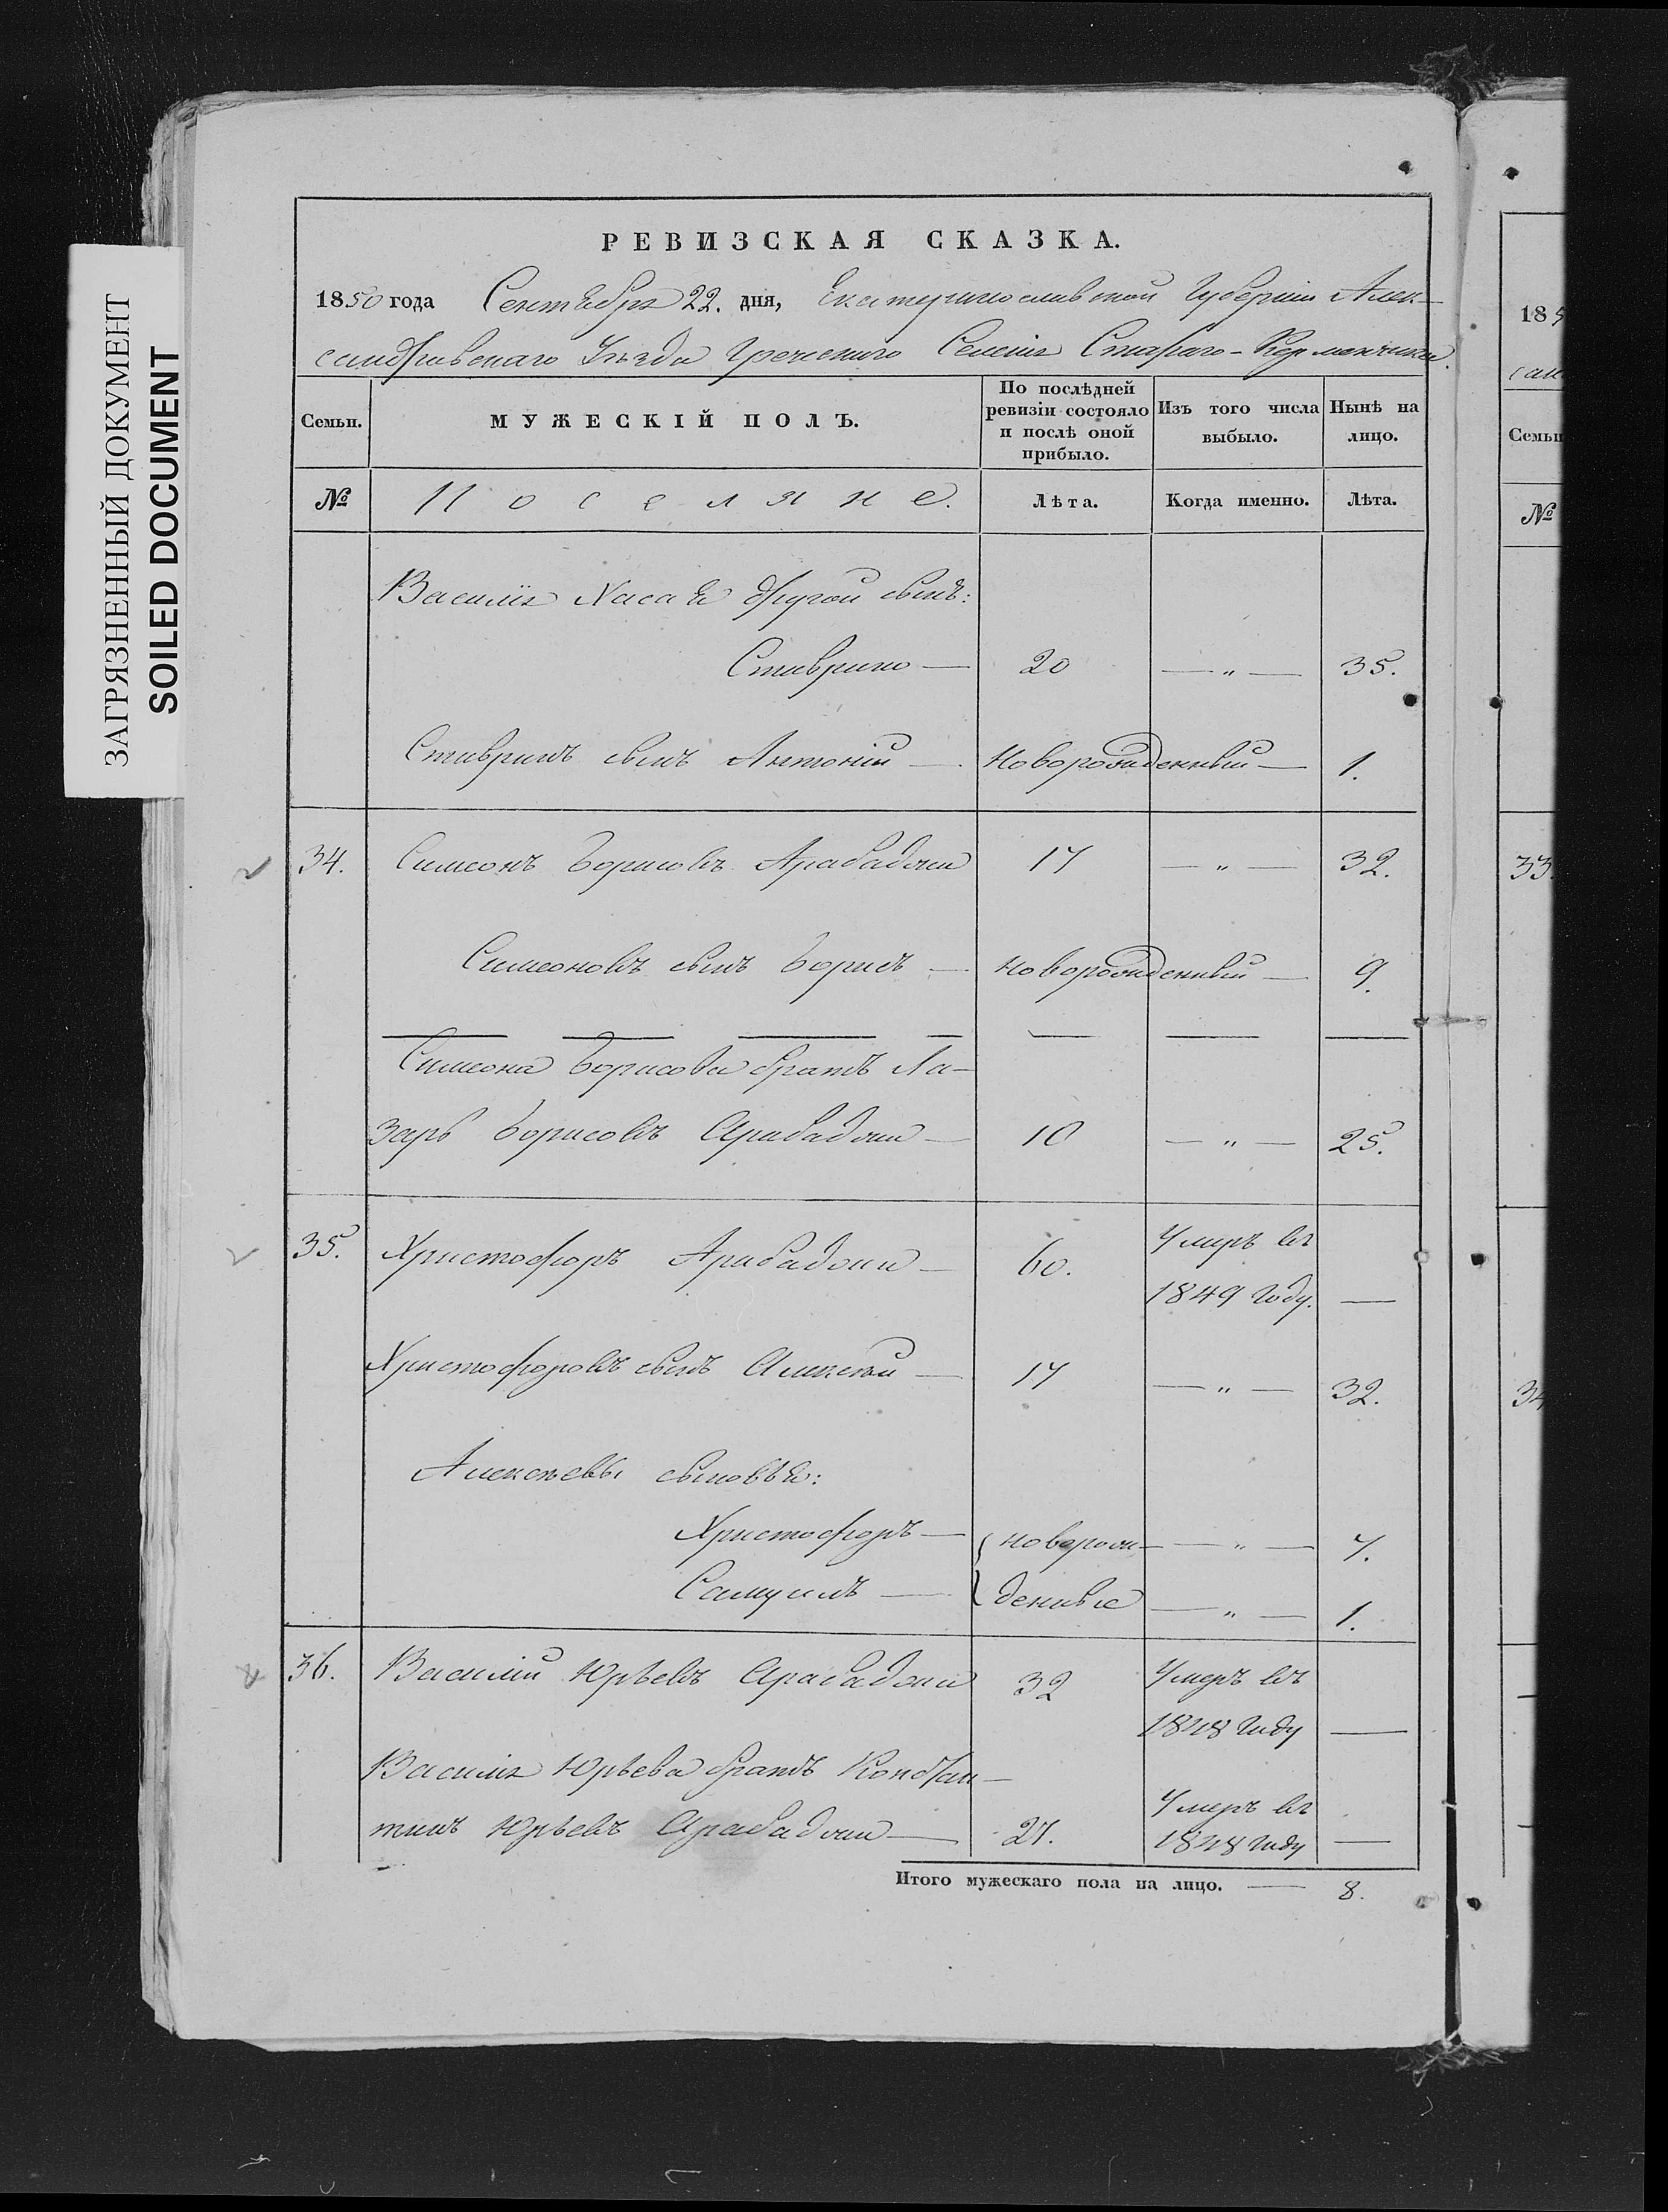 ЗАГРЯЗНЕННЫЙ ДОКУМЕНТ
SOILED DOCUMENT
РЕВИЗСКАЯ СКАЗКА.
1850 года Сентября 22. дня, Екатеринославской Губерніи Алек-
сандровскаго Уѣзда Греческаго Селенія Стараго-Керменчика.
Семьи. МУЖЕСКІЙ ПОЛЪ. По послѣдней ревизіи состояло и послѣ оной прибыло. Изъ того числа выбыло. Нынѣ на лицо.
№ Поселяне. Лѣта. Когда именно. Лѣта.
Василія Хасая другой сынъ:
Ставрино — 20 — „ — 35.
Ставринъ сынъ Антоній — Новорожденный — 1.
34. Симеонъ Борисовъ Арабаджи 17 — „ — 32.
Симеоновъ сынъ Борисъ — новорожденный — 9.
Симеона Борисова братъ Ла-
зарь Борисовъ Арабаджи — 10 — „ — 25.
35. Христофоръ Арабаджи — 60. Умеръ въ
1849 году. —
Христофоровъ сынъ Алексѣй — 17 — „ — 32.
Алексѣевы сыновья:
Христофоръ — новорож- — „ — 7.
Самуилъ — денные — „ — 1.
36. Василій Юрьевъ Арабаджи 32 Умеръ въ
1848 году —
Василія Юрьева братъ Констан-
тинъ Юрьевъ Арабаджи — 27. Умеръ въ
1848 году —
Итого мужескаго пола на лицо. — 8.
185
сан
Семьи
№
33.
34